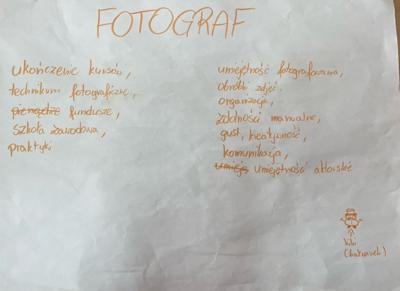 FOTOGRAF
ukończenie kursów,
technikum fotograficzne,
pieniądze fundusze,
szkoła zawodowa,
praktyki
umiejętność fotografowania,
obróbki zdjęć,
organizacja,
zdolności manualne,
gust, kreatywność,
komunikacja,
umiejętności aktorskie